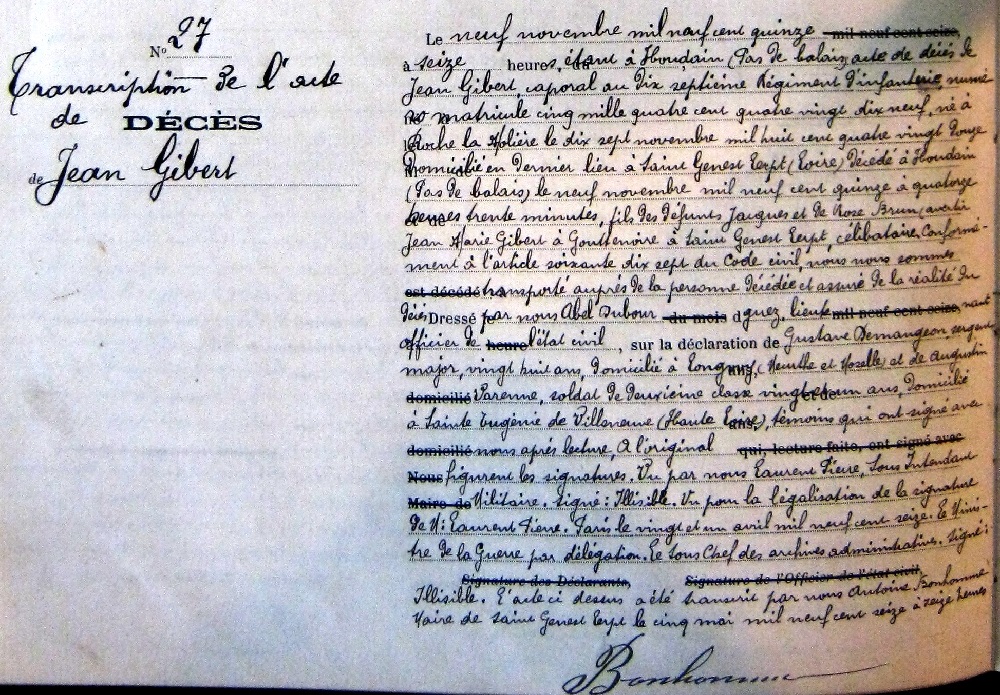 N° 27
Transcription de l'acte
de DÉCÈS
de Jean Gibert
Le neuf novembre mil neuf cent quinze mil neuf cent seize,
à seize heures, étant à Houdain (Pas de Calais) acte de décès de
Jean Gibert, caporal au dix septième Régiment d'infanterie, numé
ro matricule cinq mille quatre cent quatre vingt dix neuf, né à
Roche la Molière le dix sept novembre mil huit cent quatre vingt douze
Domicilié en dernier lieu à Saint Genest Lerpt (Loire) Décédé à Houdain
(Pas de Calais) le neuf novembre mil neuf cent quinze à quatorze
heures trente minutes, fils des défunts Jacques et de Rose Brun, avertir
Jean Marie Gibert à Gouttenoire à Saint Genest Lerpt, célibataire, Conformé-
ment à l'article soixante dix sept du Code civil, nous nous sommes
est décédé transporté auprès de la personne décédée et assuré de la réalité du
décès Dressé par nous Abel Dubour du mois d guez, lieute mil neuf cent seize, nant
officier de heure l'état civil, sur la déclaration de Gustave Demangeon sergent
major, vingt huit ans, domicilié à Longwy, (Meurthe et Moselle) et de Augustin
domicilié Varenne, soldat de deuxième classe vingt et un ans, domicilié
à Sainte Eugénie de Villeneuve (Haute Loire), témoins qui ont signé avec
domicilié nous après lecture, A l'original qui, lecture faite, ont signé avec
Nous figurent les signatures. Vu par nous Laurent Pierre, Sous Intendant
Maire de Militaire. Signé: Illisible. Vu pour la légalisation de la signature
de M: Laurent Pierre. Paris le vingt et un avril mil neuf cent seize. Le Minis-
tre de la Guerre par délégation. Le sous Chef des archives administratives. Signé:
Signature des Déclarants, Signature de l'Officier de l'état civil,
Illisible. L'acte ci dessus a été transcrit par nous Antoine Bonhomme
Maire de Saint Genest Lerpt le cinq mai mil neuf cent seize à seize heures
Bonhomme